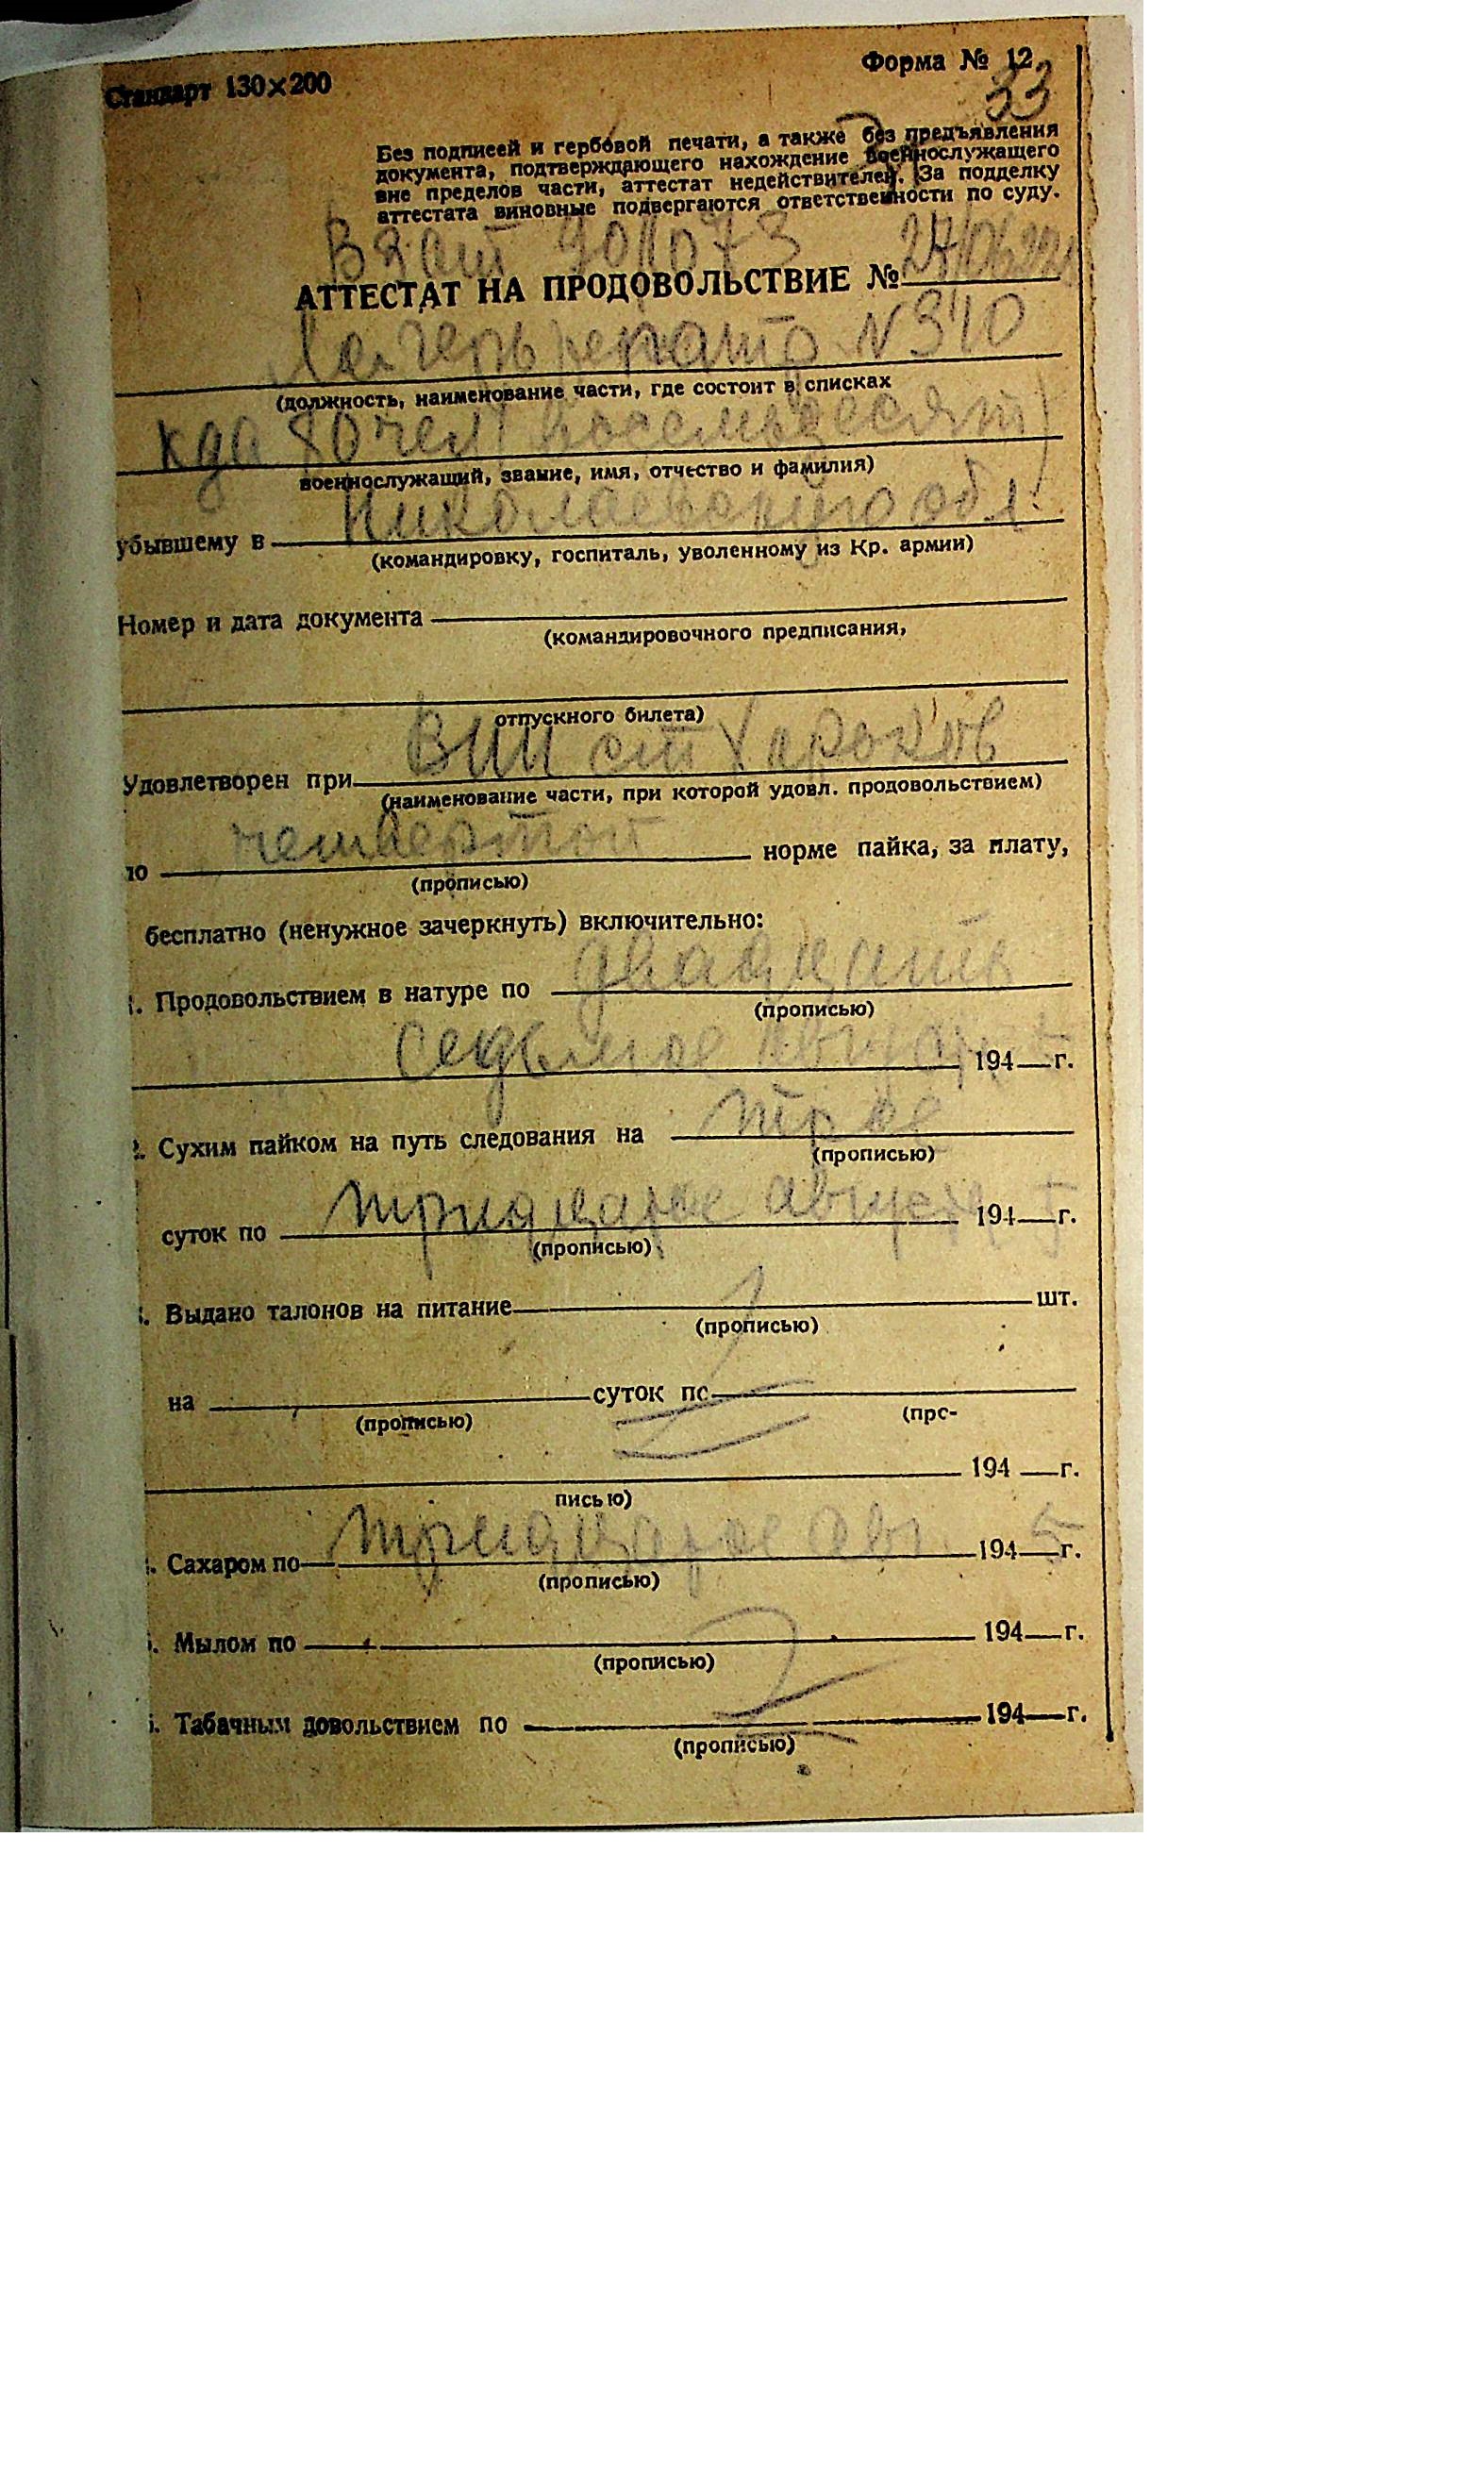 Стандарт 130×200
Форма № 12
33
Без подписей и гербовой печати, а также без предъявления
документа, подтверждающего нахождение военнослужащего
вне пределов части, аттестат недействителен. За подделку
аттестата виновные подвергаются ответственности по суду.
Вз ат
АТТЕСТАТ НА ПРОДОВОЛЬСТВИЕ №
Лагерь репатр N 310
(должность, наименование части, где состоит в списках
80 чел (восемьдесят)
военнослужащий, звание, имя, отчество и фамилия)
убывшему в Николаевскую обл.
(командировку, госпиталь, уволенному из Кр. армии)
Номер и дата документа
(командировочного предписания,
отпускного билета)
Удовлетворен при ст Харьков
(наименование части, при которой удовл. продовольствием)
по четвертой норме пайка, за плату,
(прописью)
бесплатно (ненужное зачеркнуть) включительно:
1. Продовольствием в натуре по двадцать
(прописью)
седьмое августа 194 5 г.
2. Сухим пайком на путь следования на трое
(прописью)
суток по тридцатое августа 194 5 г.
(прописью)
. Выдано талонов на питание шт.
(прописью)
на суток по
(прописью) (про-
194 г.
писью)
. Сахаром по тридцатое авг 194 5 г.
(прописью)
. Мылом по 194 г.
(прописью)
. Табачным довольствием по 194 г.
(прописью)